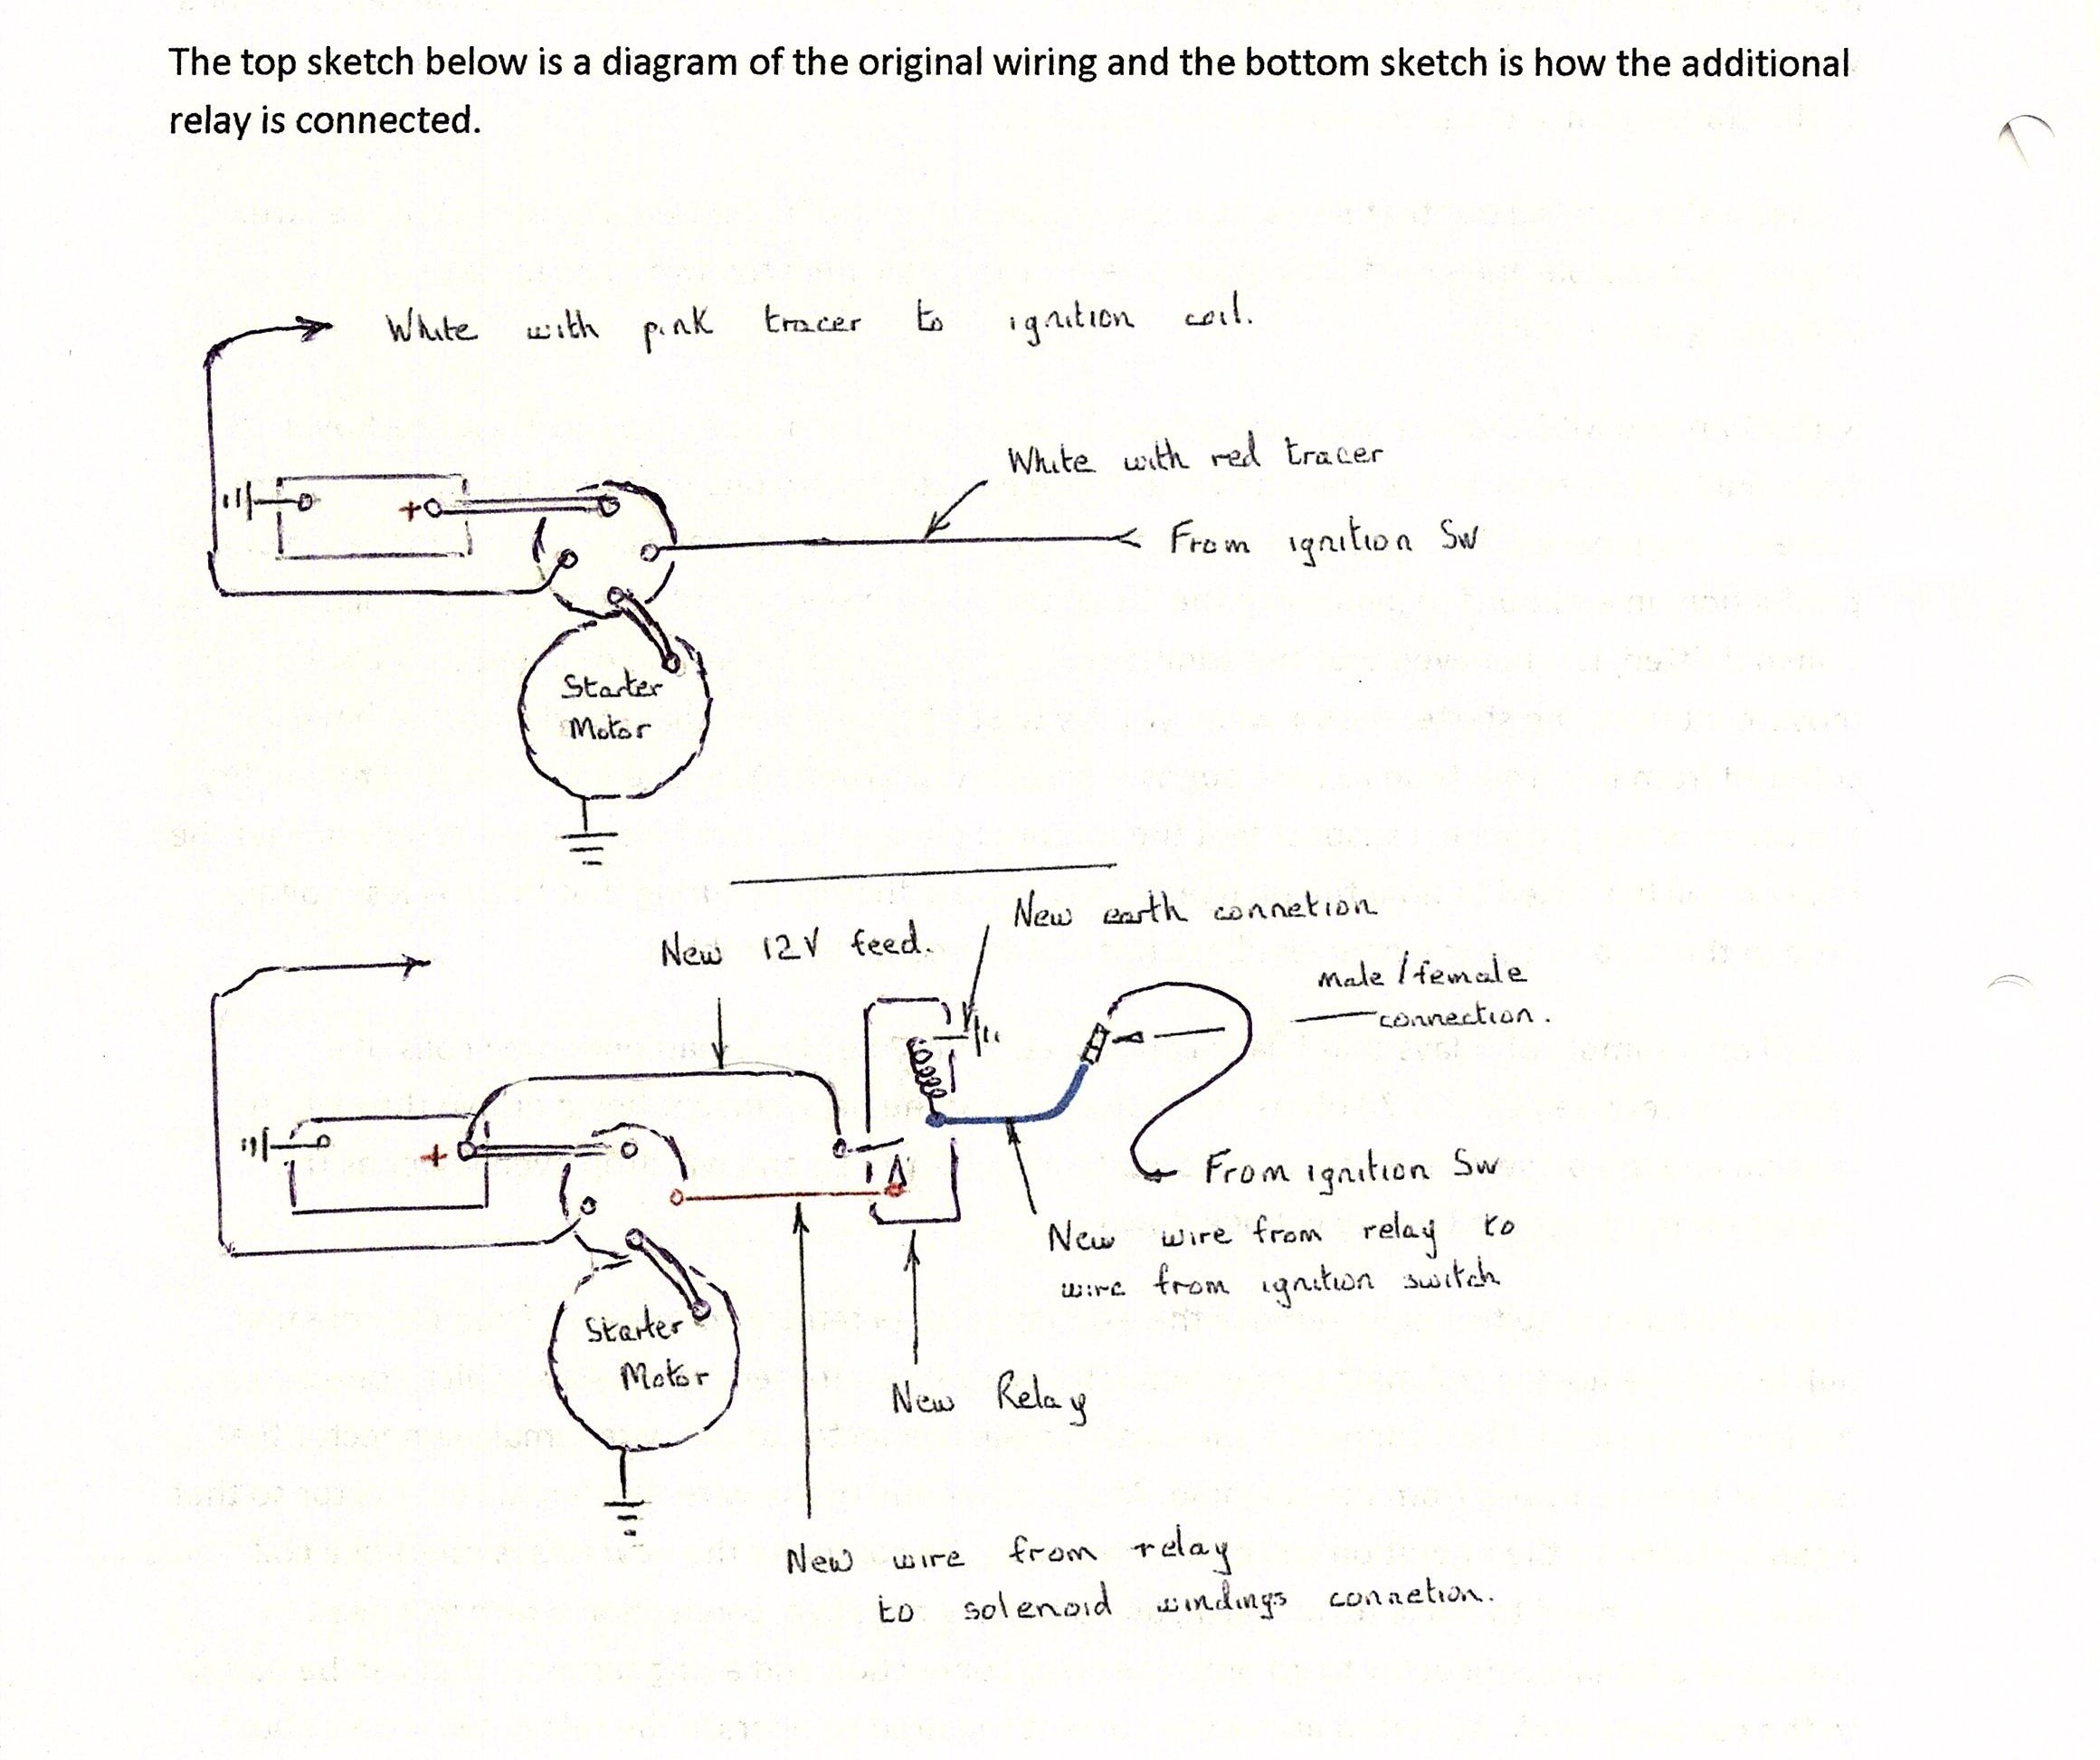 The top sketch below is a diagram of the original wiring and the bottom sketch is how the additional
relay is connected.
White with pink tracer to ignition coil.
White with red tracer
+
From ignition Sw
Starter
Motor
New earth connetion
New 12V feed.
male / female
connection.
+
From ignition Sw
New wire from relay to
wire from ignition switch
Starter
Motor
New Relay
New wire from relay
to solenoid windings connetion.